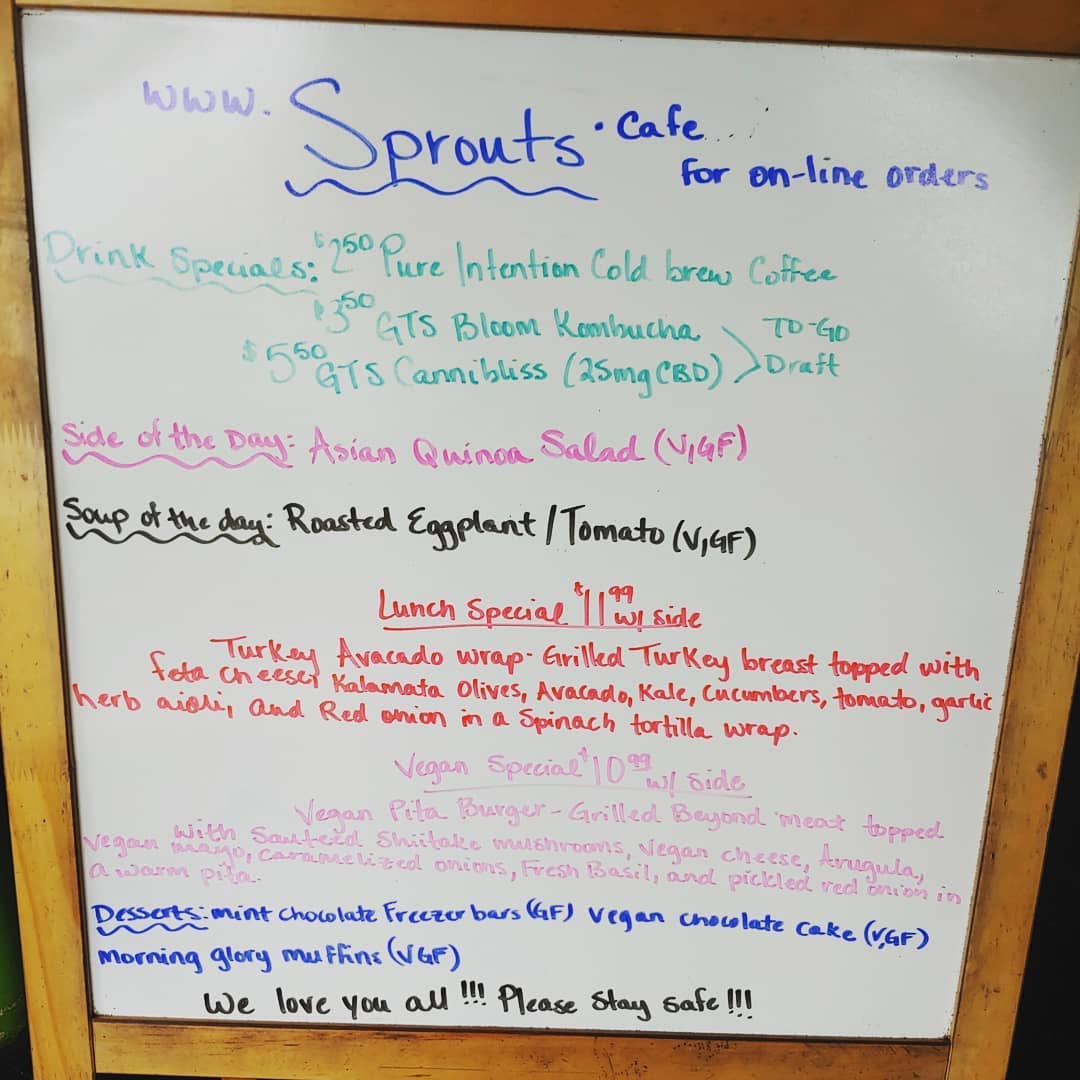 www. Sprouts . Cafe...
for on-line orders
Drink Specials: $2.50 Pure Intention Cold brew Coffee
$3.50 GTS Bloom Kombucha
TO-GO
$5.50 GTS Cannibliss (25mg CBD)
Draft
Side of the Day: Asian Quinoa Salad (V,GF)
Soup of the day: Roasted Eggplant / Tomato (V,GF)
Lunch Special $11.99 w/ side
Turkey Avacado wrap- Grilled Turkey breast topped with
feta cheese, Kalamata Olives, Avacado, Kale, Cucumbers, tomato, garlic
herb aioli, and Red onion in a Spinach tortilla wrap.
Vegan Special $10.99 w/ side
Vegan Pita Burger - Grilled Beyond meat topped
with Sauteed Shiitake mushrooms, vegan cheese, Arugula,
vegan mayo, caramelized onions, Fresh Basil, and pickled red onion in
a warm pita.
Desserts: mint chocolate Freezer bars (GF) vegan chocolate cake (V,GF)
morning glory muffins (VGF)
We love you all !!! Please Stay safe !!!